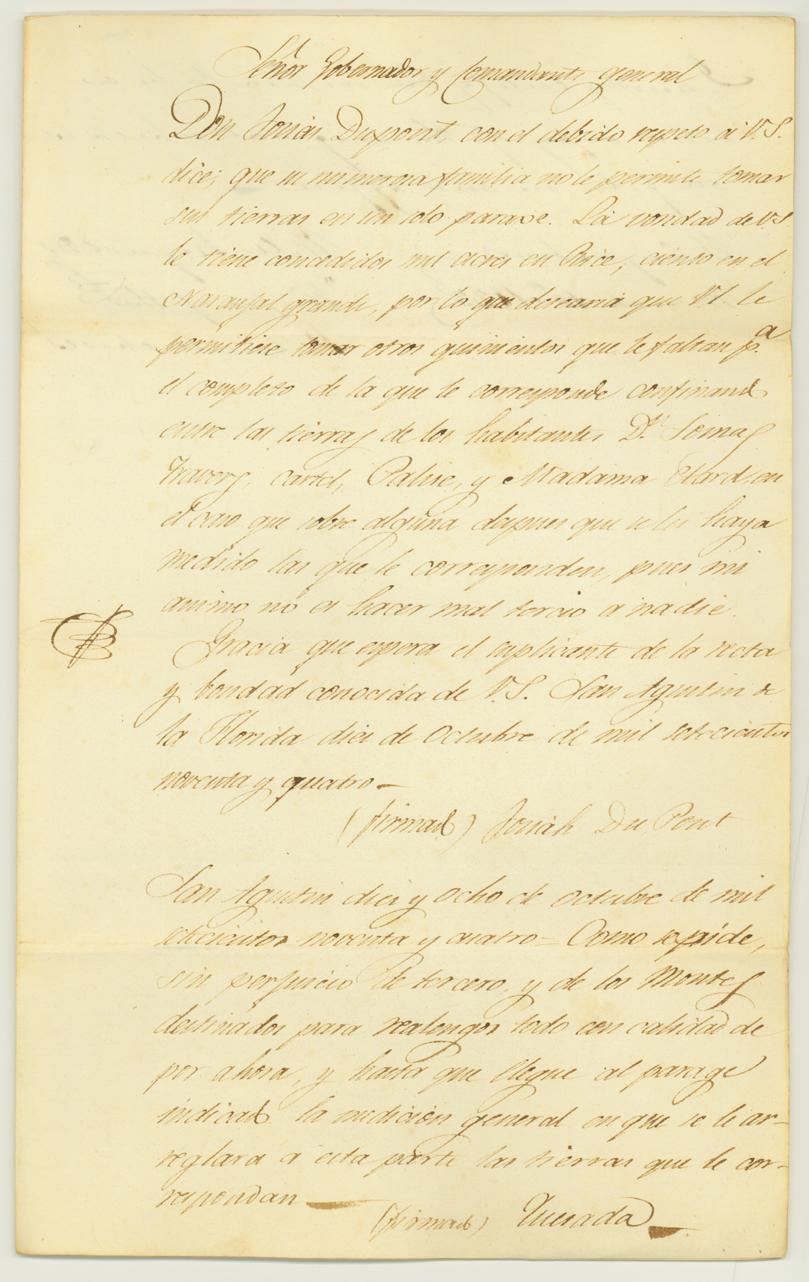 Señor Gobernador y Comandante general
Don Josias Dupont, con el debido respeto á V.S.
dice; que su numerosa familia no le permite tomar
sus tierras en un solo parage. La vondad de V.S.
le tiene concedidos mil acres en, ciento en el
Naranjal grande, por lo que desearia que V.S. le
permitiese tomar otros quinientos que le faltan p.a
el completo de la que le corresponde confinando
entre las tierras de los habitantes D.n
Travers, y Madama en
el caso que sobre alguna despues que se les haya
medido las que le corresponden, pues mi
animo no es hacer mal tercio a nadie.
Gracia que espera el suplicante de la recta
y bondad conocida de V.S. San Agustin de
la Florida diez de Octubre de mil setecientos
noventa y quatro—
(firmado) Josiah Du Pont
San Agustin diez y ocho de Octubre de mil
setecientos noventa y cuatro— Como se pide,
sin perjuicio de tercero, y de los Montes
destinados para realengos todo con calidad de
por ahora, y hasta que llegue al parage
indicado la medicion general en que se le ar-
reglara a esta parte las tierras que le cor-
respondan—
(firmado) Quesada